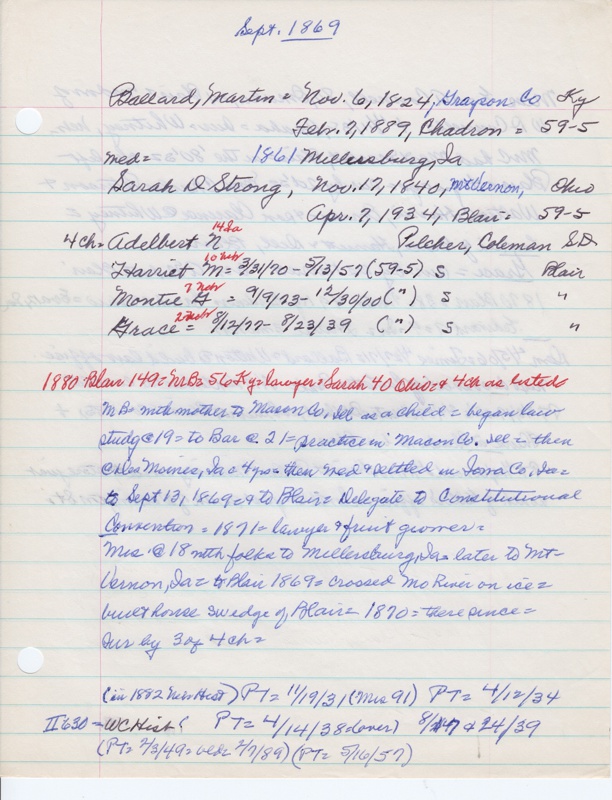 Sept. 1869
Ballard, Martin = Nov. 6, 1824, Grayson Co Ky
Febr. 7, 1889, Chadron = 59-5
med = 1861 Millersburg, Ia
Sarah D Strong, Nov. 17, 1840, Mt Vernon, Ohio
Apr. 7, 1934, Blair = 59-5
14 Ia
4 ch = Adelbert N Pilcher, Coleman S.D.
10 Nebr
Harriet M = 3/31/70 - 5/13/57 (59-5) S Blair
7 Nebr
Montie G = 9/9/73 - 12/30/00 (") S "
2 Nebr
Grace = 8/12/77 - 8/23/39 (") S "
1880 Blair 149 = MB = 56 Ky = lawyer = Sarah 40 Ohio = & 4 ch as listed
MB = mth mother to Macon Co, Ill as a child = began law
study @ 19 = to Bar @ 21 = practice in Macon Co. Ill = then
@ Des Moines, Ia = 4 yrs = then med & settled in Iowa Co, Ia =
to Sept 13, 1869 = & to Blair = Delegate to Constitutional
Convention = 1871 = lawyer & fruit grower =
Mrs @ 18 mth folks to Millersburg, Ia = later to Mt
Vernon, Ia = to Blair 1869 = crossed Mo River on ice =
built house SW edge of Blair = 1870 = there since =
Sur by 3 of 4 ch =
(in 1882 Nebr Hist) PT = 11/19/31 (Mrs 91) PT = 4/12/34
II 630 = WC Hist { PT = 4/14/38 (lover) & 24/39
(PT = 2/3/49 = 2/7/89) (PT = 5/16/57)